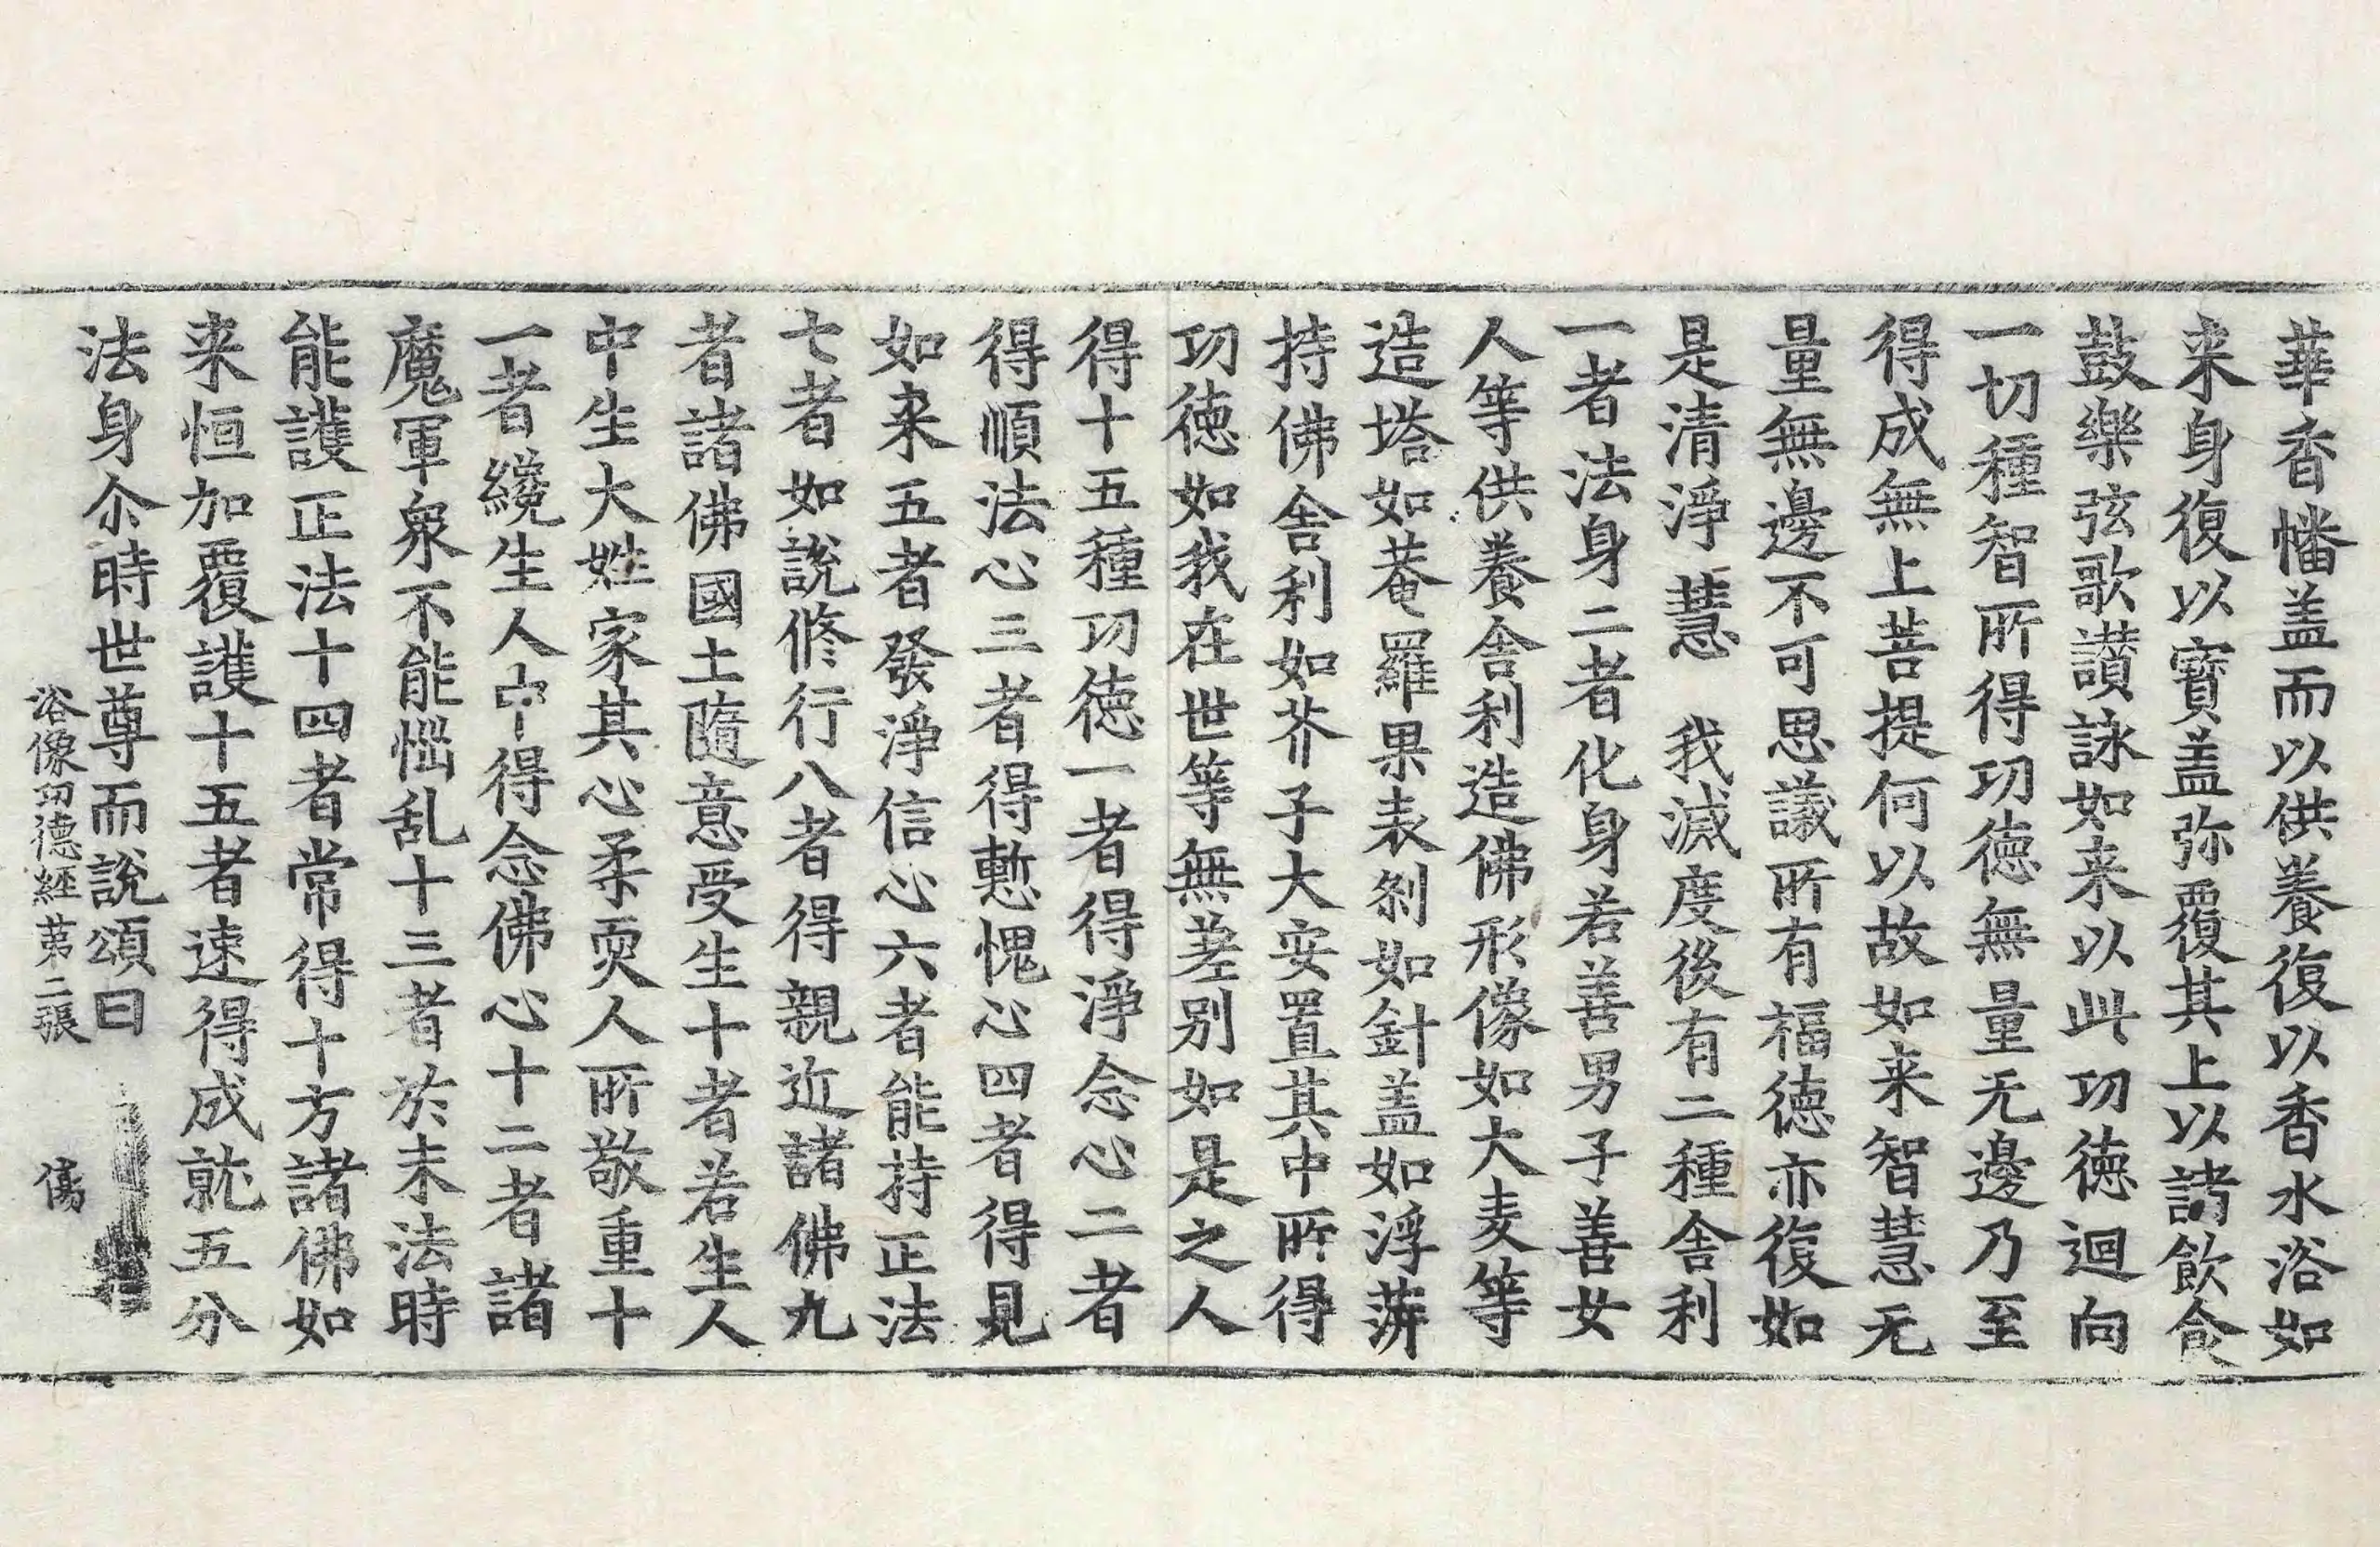 華香幡盖而以供養復以香水浴如
来身復以寶盖弥覆其上以諸飲食
鼓樂弦歌讃詠如来以此功德迴向
一切種智所得功德無量无邊乃至
得成無上菩提何以故如来智慧无
量無邊不可思議所有福德亦復如
是清淨慧　我滅度後有二種舍利
一者法身二者化身若善男子善女
人等供養舍利造佛形像如大麦等
造塔如菴羅果表剎如針盖如浮蓱
持佛舍利如芥子大安置其中所得
功徳如我在世等無差别如是之人
得十五種功徳一者得淨念心二者
得順法心三者得慙愧心四者得見
如来五者發淨信心六者能持正法
七者如說修行八者得親近諸佛九
者諸佛國土隨意受生十者若生人
中生大姓家其心柔耎人所敬重十
一者纔生人中得念佛心十二者諸
魔軍衆不能惱乱十三者於末法時
能護正法十四者常得十方諸佛如
来恒加覆護十五者速得成就五分
法身尒時世尊而說頌曰
浴像功德經　第二張　傷